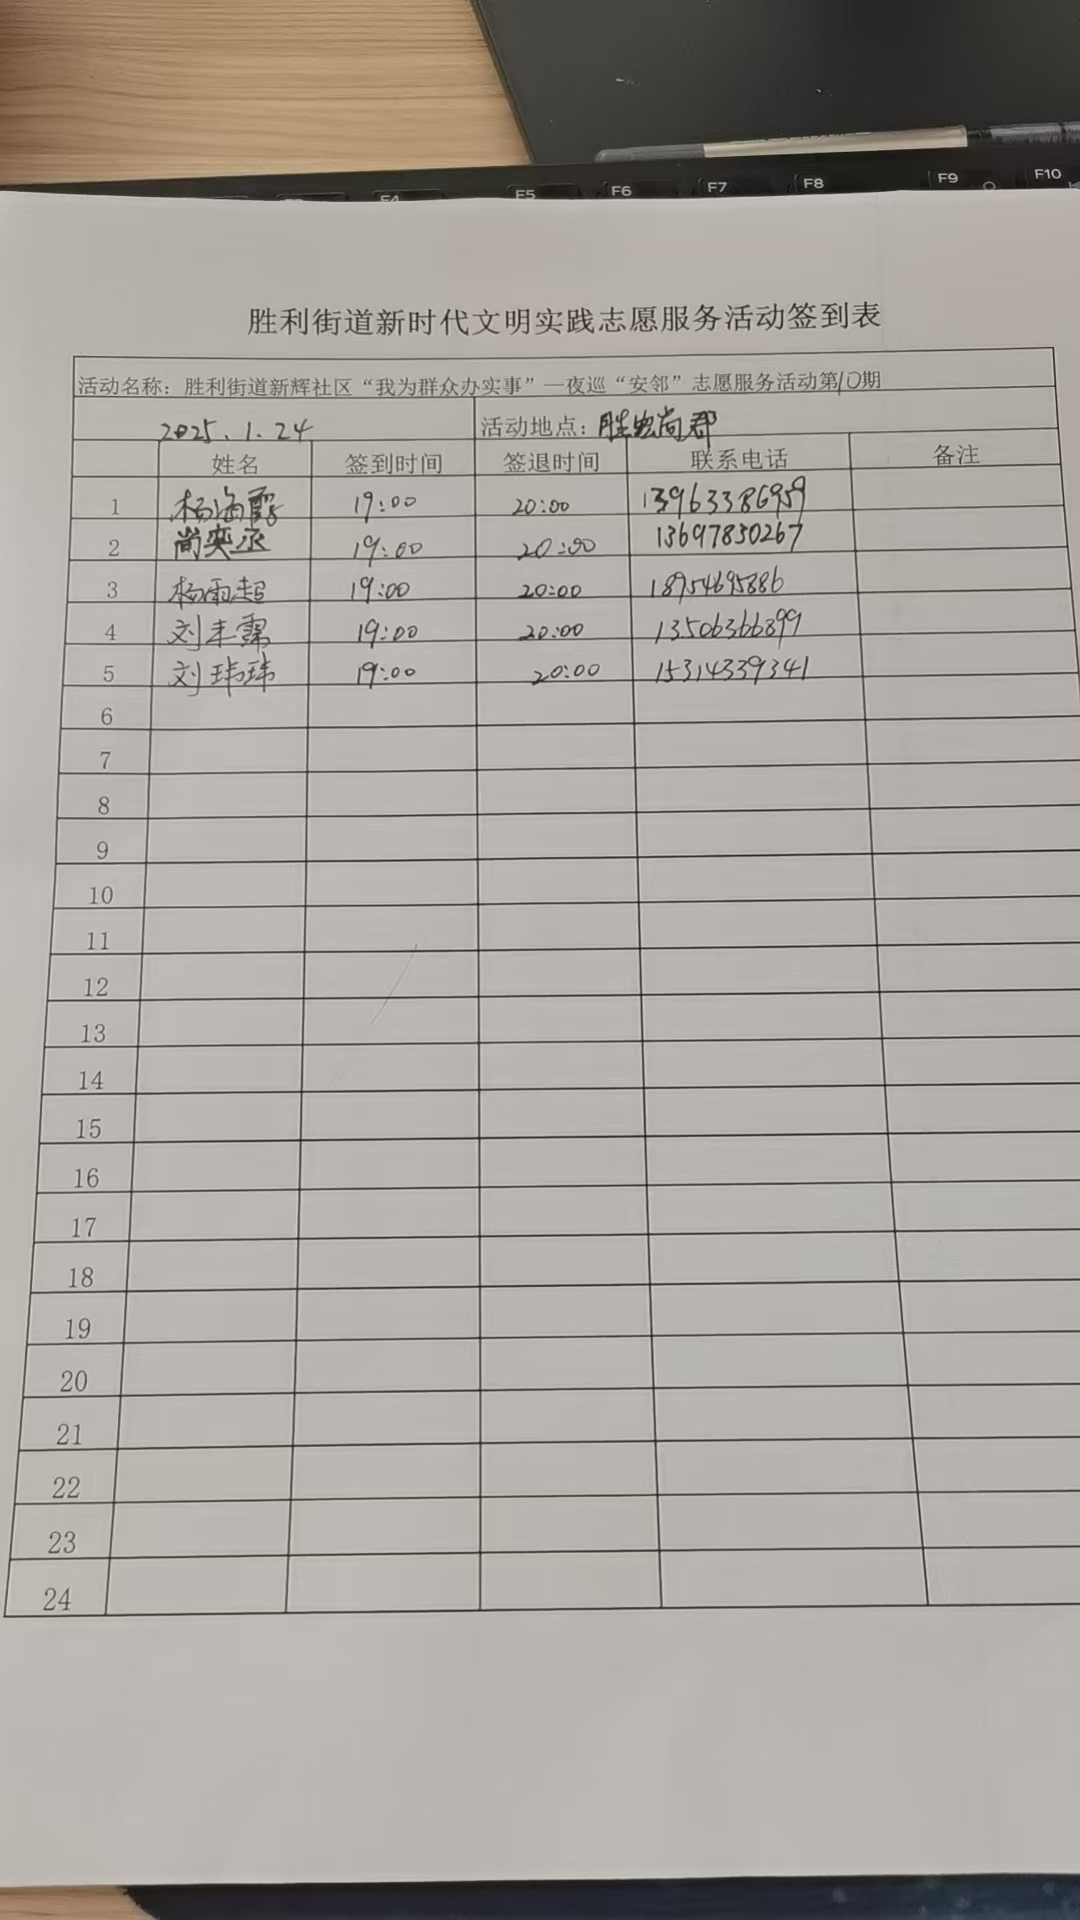 F4
F5
F6
F7
F8
F9
F10
胜利街道新时代文明实践志愿服务活动签到表
活动名称：胜利街道新辉社区“我为群众办实事”—夜巡“安邻”志愿服务活动第10期
2025.1.24 活动地点：胜宏尚郡
姓名 签到时间 签退时间 联系电话 备注
1 杨海霞 19:00 20:00 13963386959
2 尚奕丞 19:00 20:00 13697850267
3 杨雨超 19:00 20:00 18954695886
4 刘丰霈 19:00 20:00 13506366899
5 刘玮玮 19:00 20:00 15314339341
6
7
8
9
10
11
12
13
14
15
16
17
18
19
20
21
22
23
24